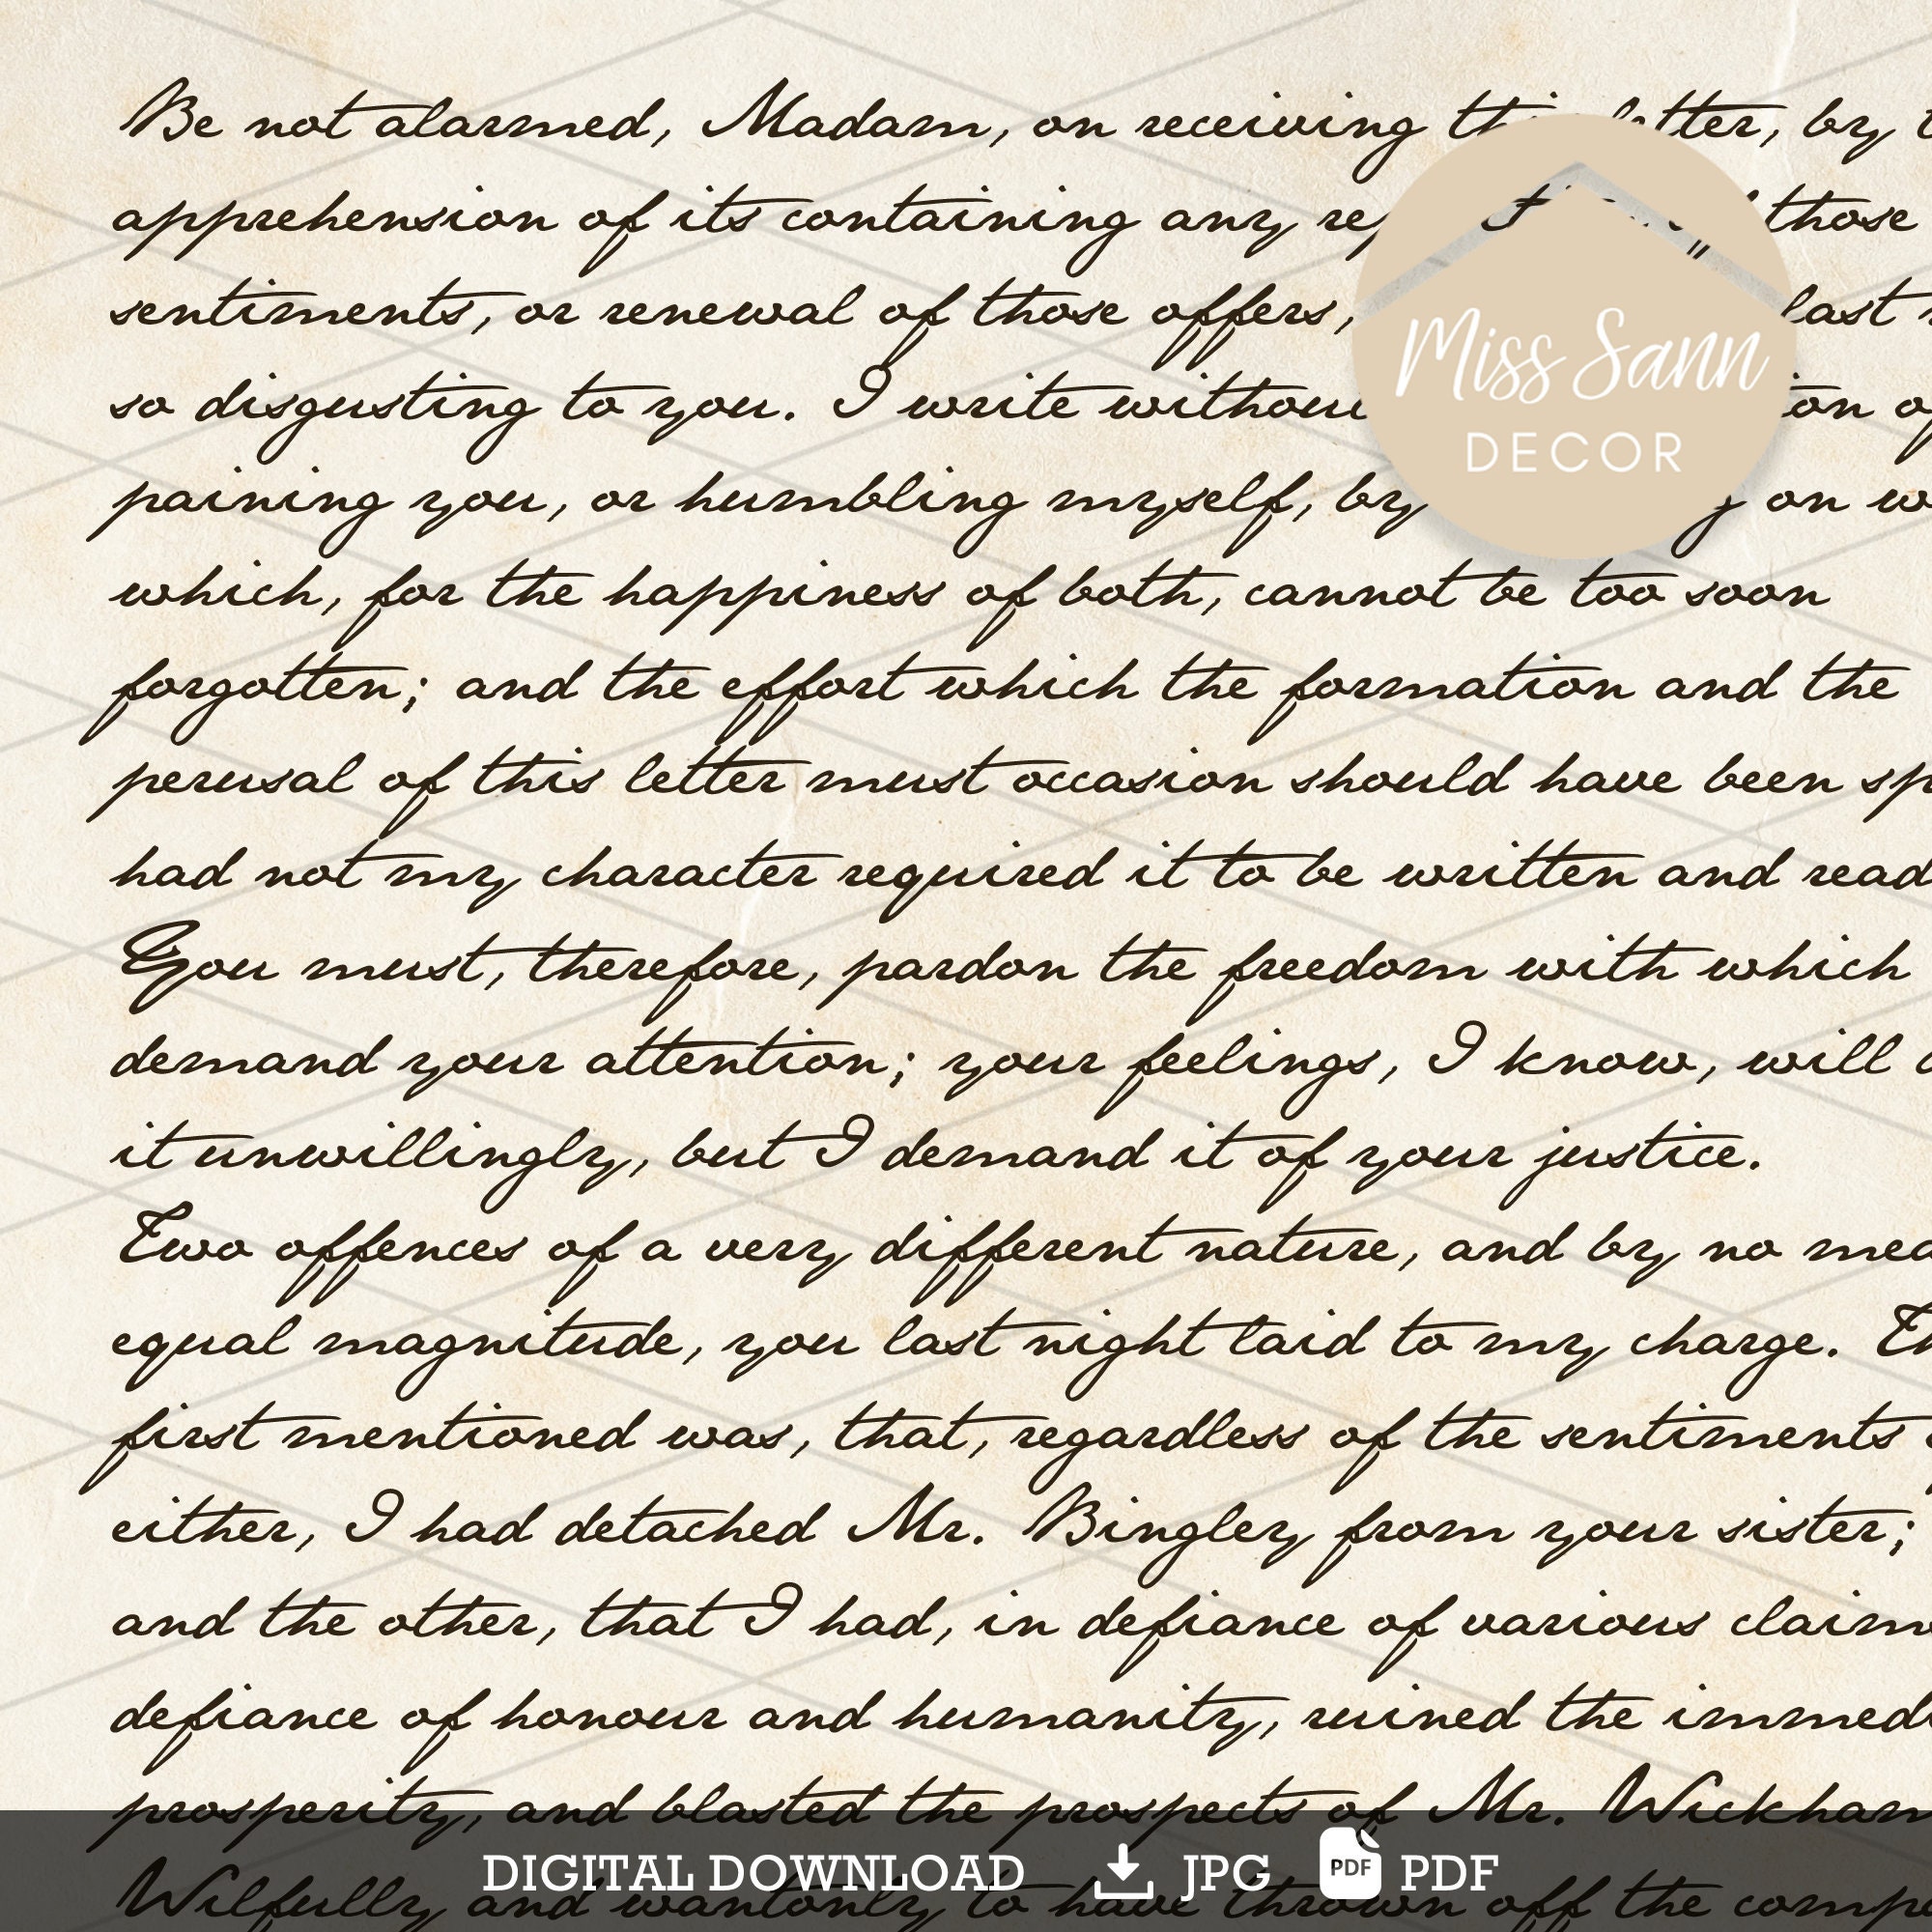 Be not alarmed, Madam, on receiving this letter, by
apprehension of its containing any those
sentiments, or renewal of those offers, last
so disgusting to you. I write without of
paining you, or humbling myself, by on
which, for the happiness of both, cannot be too soon
forgotten; and the effort which the formation and the
perusal of this letter must occasion should have been
had not my character required it to be written and read
You must, therefore, pardon the freedom with which
demand your attention; your feelings, I know, will
it unwillingly, but I demand it of your justice.
Two offences of a very different nature, and by no
equal magnitude, you last night laid to my charge.
first mentioned was, that, regardless of the sentiments
either, I had detached Mr. Bingley from your sister;
and the other, that I had, in defiance of various
defiance of honour and humanity, ruined the
prosperity, and blasted the prospects of Mr. Wickham
Wilfully and wantonly to have thrown off the
Miss Sann
DECOR
DIGITAL DOWNLOAD JPG PDF PDF